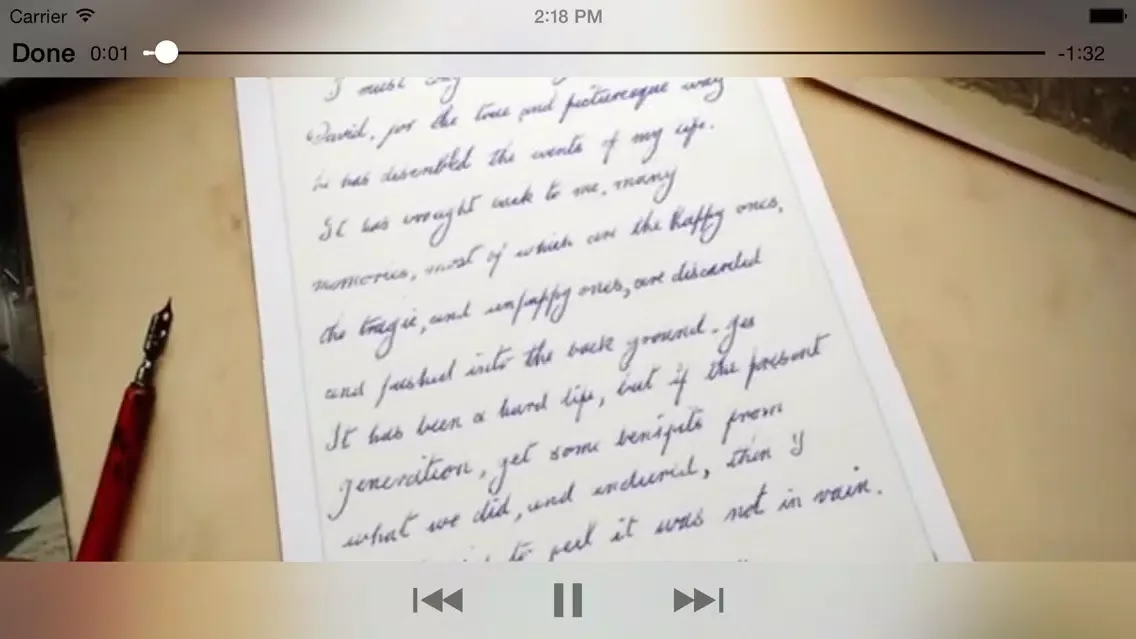 Carrier 2:18 PM
Done 0:01 -1:32
I must
David, for the true and picturesque way
he has disembled the events of my life.
It has brought back to me, many
memories, most of which are the happy ones,
the tragic, and unhappy ones, are discarded
and pushed into the back ground. Yes
It has been a hard life, but if the present
generation, get some benifits from
what we did, and endured, then I
to feel it was not in vain.